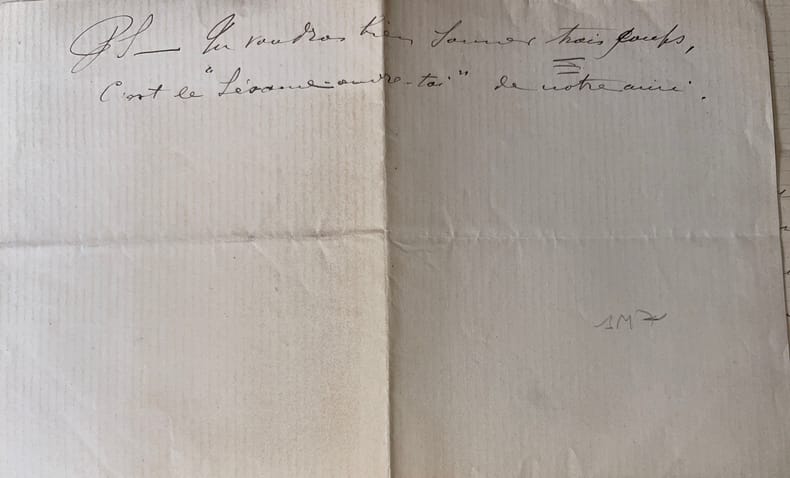 PS — Tu voudras bien sonner trois coups,
C'est le "Sésame-ouvre-toi" de notre ami.
1M7